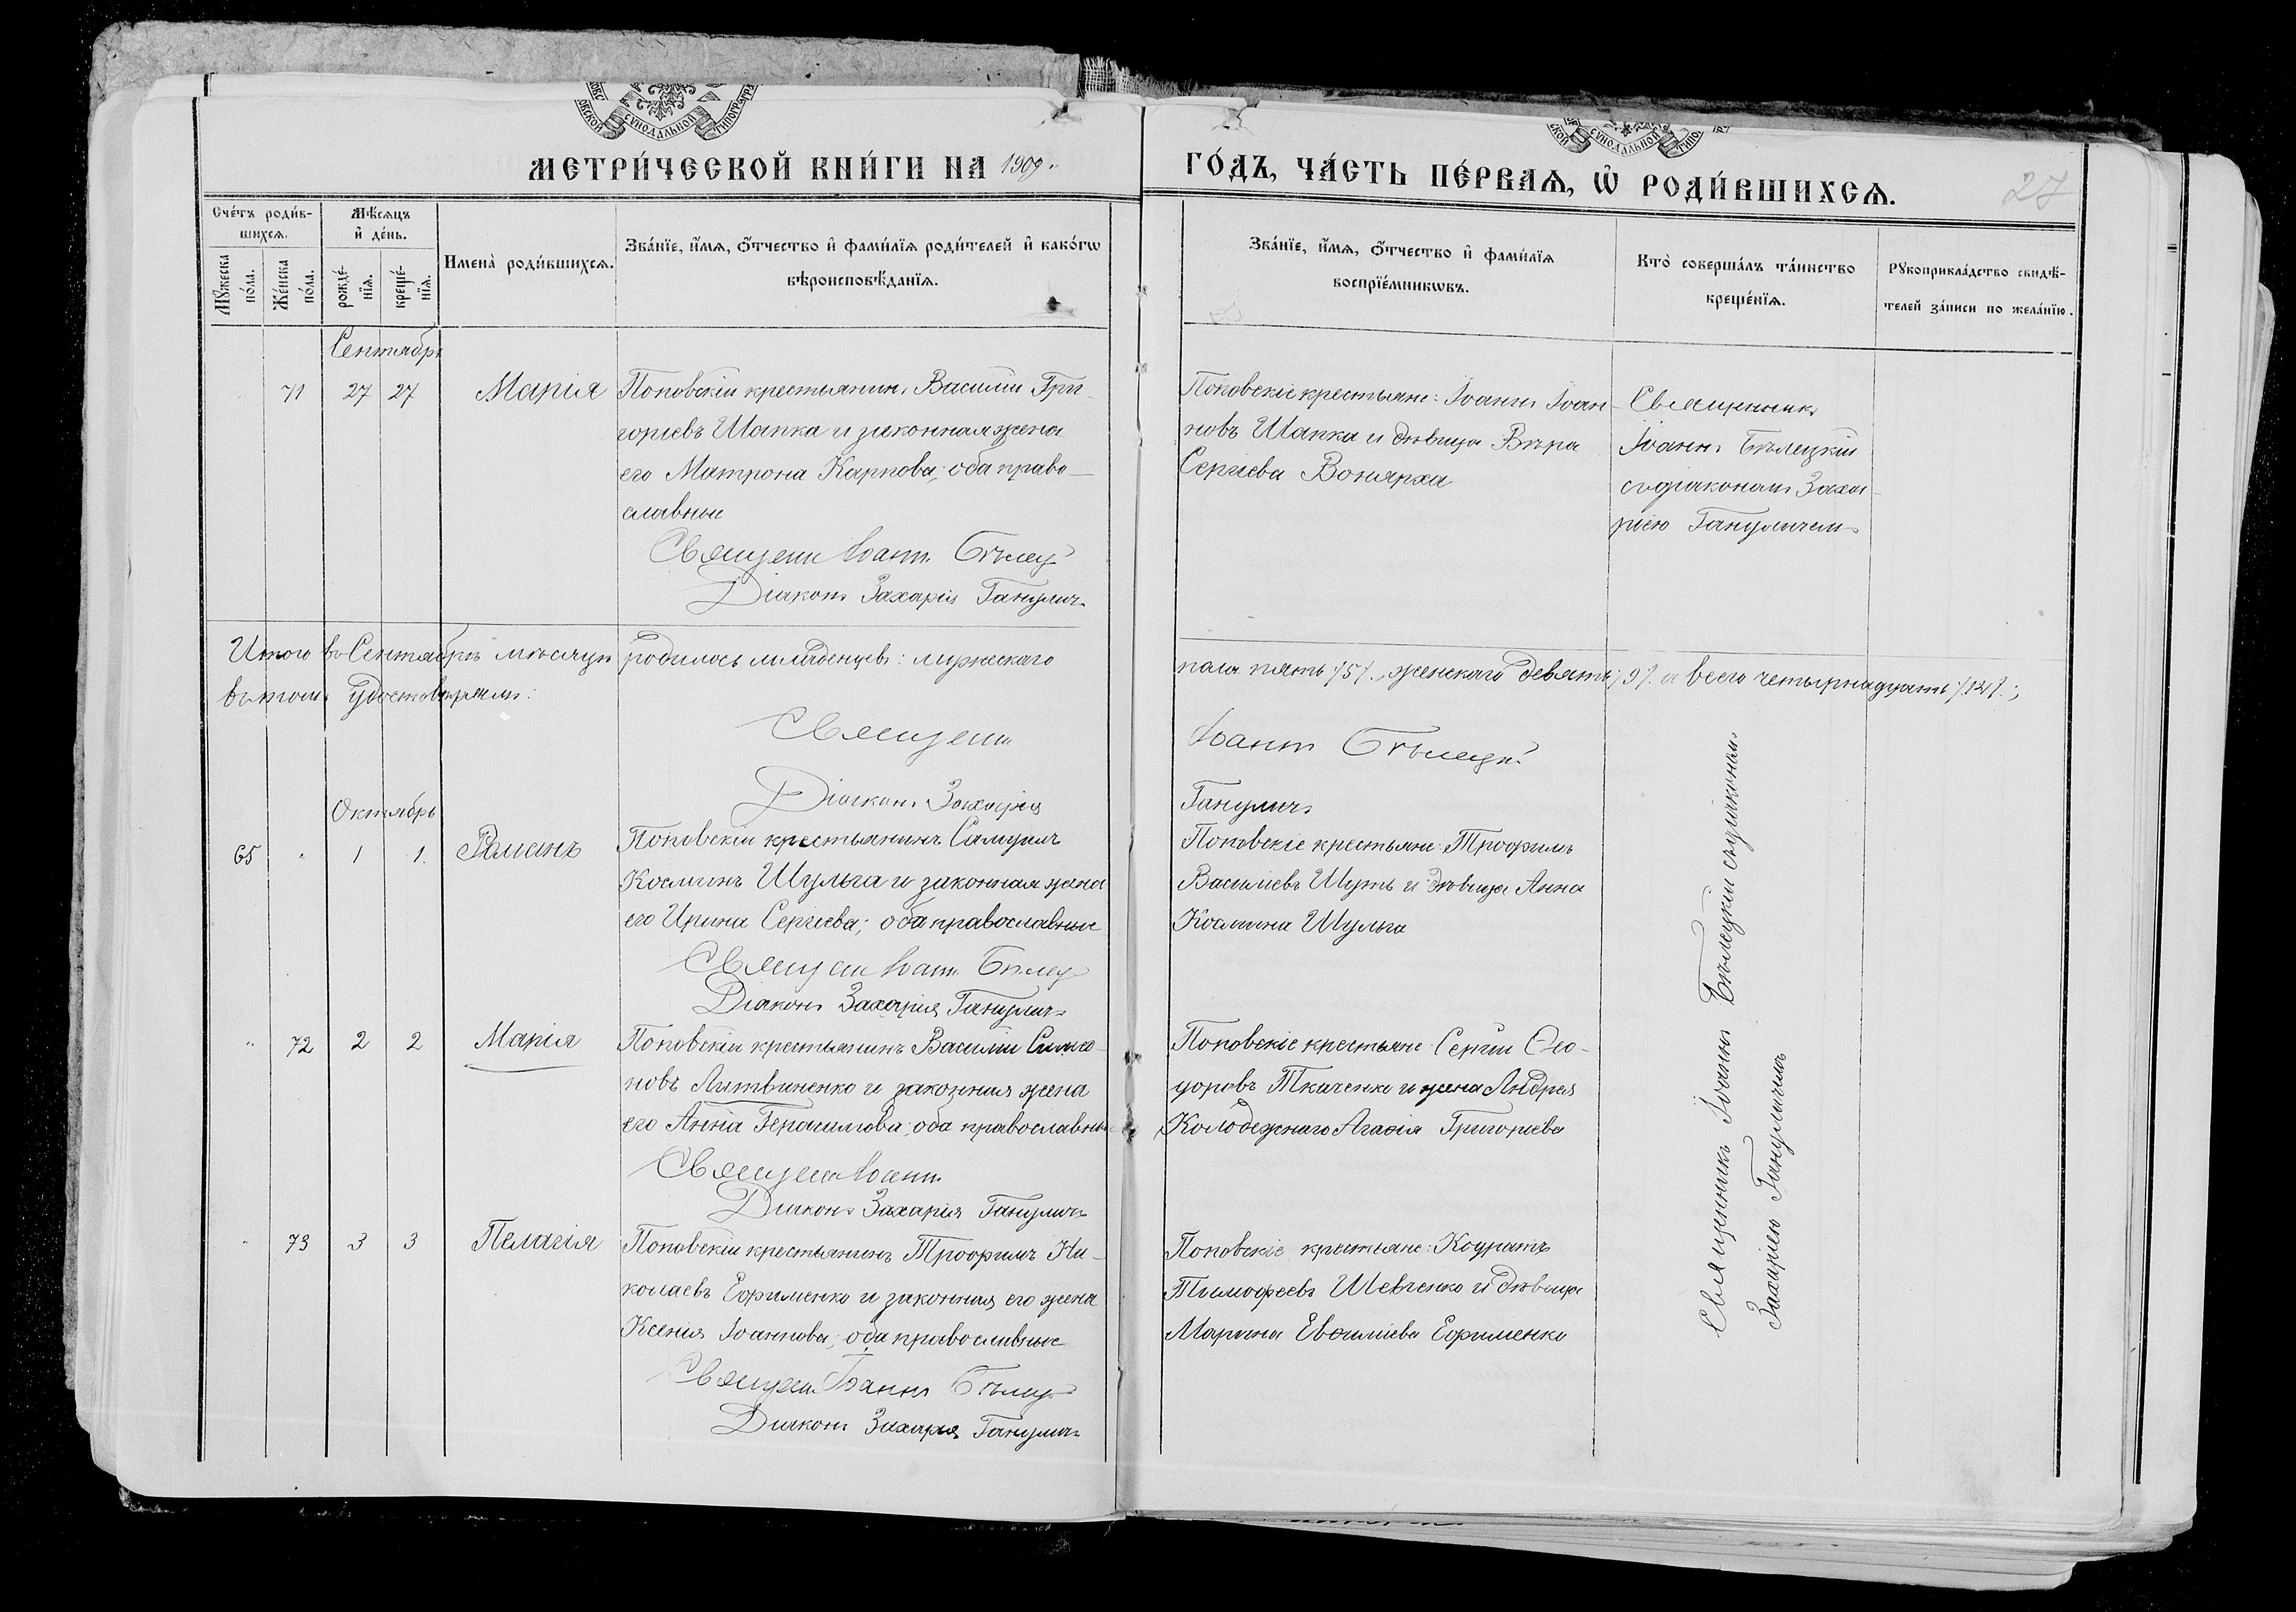 СѴНОДАЛЬНОЙ
СѴНОДАЛЬНОЙ
МЕТРИ́ЧЕСКОЙ КНИ́ГИ НА 1909 г.
ГО́ДЪ, ЧА́СТЬ ПЕ́РВАѦ, Ѡ҆ РОДИ́ВШИХСѦ.
27
Сче́тъ роди́в-
шихсѧ.
Мѣ́сѧцъ
и҆ де́нь.
Имена̀ роди́вшихсѧ.
Зва́нїе, и҆́мѧ, ѻ҆́тчество и҆ фами́лїѧ роди́телей и҆ како́гѡ
вѣроисповѣ́данїѧ.
Зва́нїе, и҆́мѧ, ѻ҆́тчество и҆ фами́лїѧ
воспрїе́мникѡвъ.
Кто̀ соверша́лъ та́инство
креще́нїѧ.
Рꙋкоприкла́дство свидѣ́-
телей за́писи по жела́нїю.
Мꙋ́жеска
по́ла.
Же́нска
по́ла.
рожде́-
нїѧ.
креще́-
нїѧ.
Сентябрь
71 27 27 Марія
Поповскій крестьянинъ Василій Гри-
горіевъ Шапка и законная жена
его Матрона Карпова; оба право-
славные
Священ Іоаннъ Бѣлец
Діаконъ Захарія Ганулич
Поповскіе крестьяне: Іоаннъ Іоан-
новъ Шапка и дѣвица Вѣра
Сергіева Вонярха
Священникъ
Іоаннъ Бѣлецкій
съ діакономъ Заха-
ріею Гануличемъ
Итого въ Сентябрѣ мѣсяцѣ родилось младенцевъ: мужескаго
пола пять /5/, женскаго девять /9/ а всего четырнадцать /14/;
въ томъ удостовѣряемъ:
Священ Іоаннъ Бѣлецкі
Діаконъ Захарія Гануличъ
Октябрь
65 " 1 1. Романъ
Поповскій крестьянинъ Самуилъ
Косминъ Шульга и законная жена
его Ирина Сергіева; оба православные
Священ Іоанн Бѣлец
Діаконъ Захарія Гануличъ
Поповскіе крестьяне: Трофимъ
Василіевъ Шуть и дѣвица Анна
Космина Шульга
" 72 2 2 Марія
Поповскій крестьянинъ Василій Симео-
новъ Литвиненко и законная жена
его Анна Герасимова, оба православные
Священ Іоанн
Діаконъ Захарія Гануличъ
Поповскіе крестьяне: Сергій Ѳео-
доровъ Ткаченко и жена Андрея
Колодежнаго Агаѳія Григоріева
" 73 3 3 Пелагія
Поповскій крестьянинъ Трофимъ Ни-
колаевъ Ефименко и законная его жена
Ксенія Іоаннова; оба православные
Священ Іоаннъ Бѣлец
Діаконъ Захарія Гануличъ
Поповскіе крестьяне: Кодратъ
Тимофеевъ Шевченко и дѣвица
Марина Евѳиміева Ефименко
Священникъ Іоаннъ Бѣлецкій съ діакономъ
Захаріею Гануличемъ